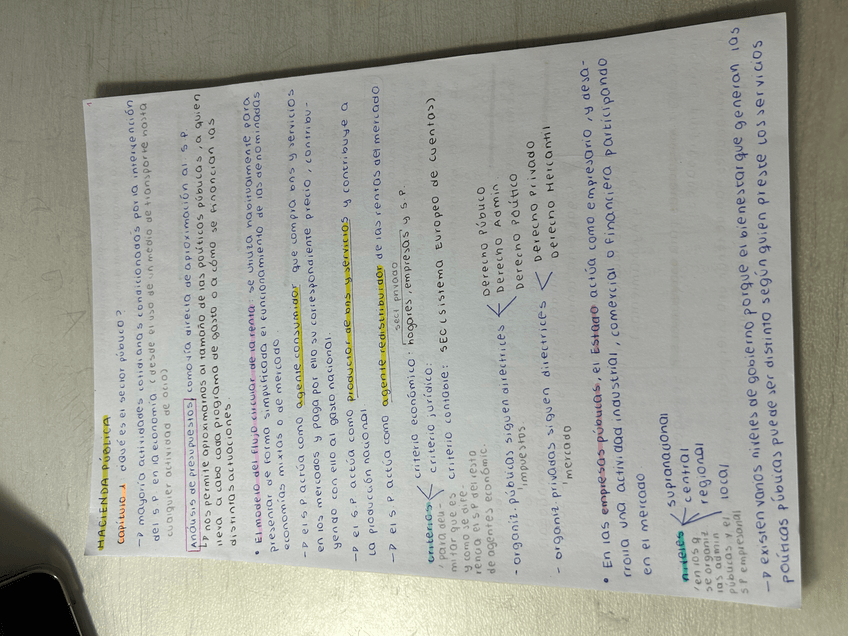 1
HACIENDA PÚBLICA
Capítulo 1 ¿Qué es el sector público?
→ mayoría actividades cotidianas condicionadas por la intervención
del SP en la economía (desde el uso de un medio de transporte hasta
cualquier actividad de ocio)
Análisis de presupuestos, como vía directa de aproximación al SP
↳ nos permite aproximarnos al tamaño de las políticas públicas, a quien
lleva a cabo cada programa de gasto o a cómo se financian las
distintas actuaciones.
• El modelo del flujo circular de la renta: se utiliza habitualmente para
presentar de forma simplificada el funcionamiento de las denominadas
economías mixtas o de mercado.
→ el SP actúa como agente consumidor que compra bns y servicios
en los mercados y paga por ello su correspondiente precio, contribu-
yendo con ello al gasto nacional.
→ el SP actúa como productor de bns y servicios y contribuye a
la producción nacional
→ el SP actúa como agente redistribuidor de las rentas del mercado
sect privado
criterios criterio económico: hogares, empresas y SP.
criterio jurídico:
criterio contable: SEC (Sistema Europeo de Cuentas)
'para deli-
mitar que es
y como se dife-
rencia el SP del resto
de agentes económic.
- organiz. públicas siguen directrices Derecho Público
Derecho Admin
Derecho Político
'impuestos
- organiz privadas siguen directrices Derecho Privado
Derecho Mercantil
'mercado
• En las empresas públicas, el Estado actúa como empresario, y desa-
rrolla una actividad industrial, comercial o financiera participando
en el mercado
niveles supranacional
central
regional
local
'en los q
se organiz
las admin
públicas y el
SP empresarial
→ existen varios niveles de gobierno porque el bienestar que generan las
políticas públicas puede ser distinto según quien preste los servicios